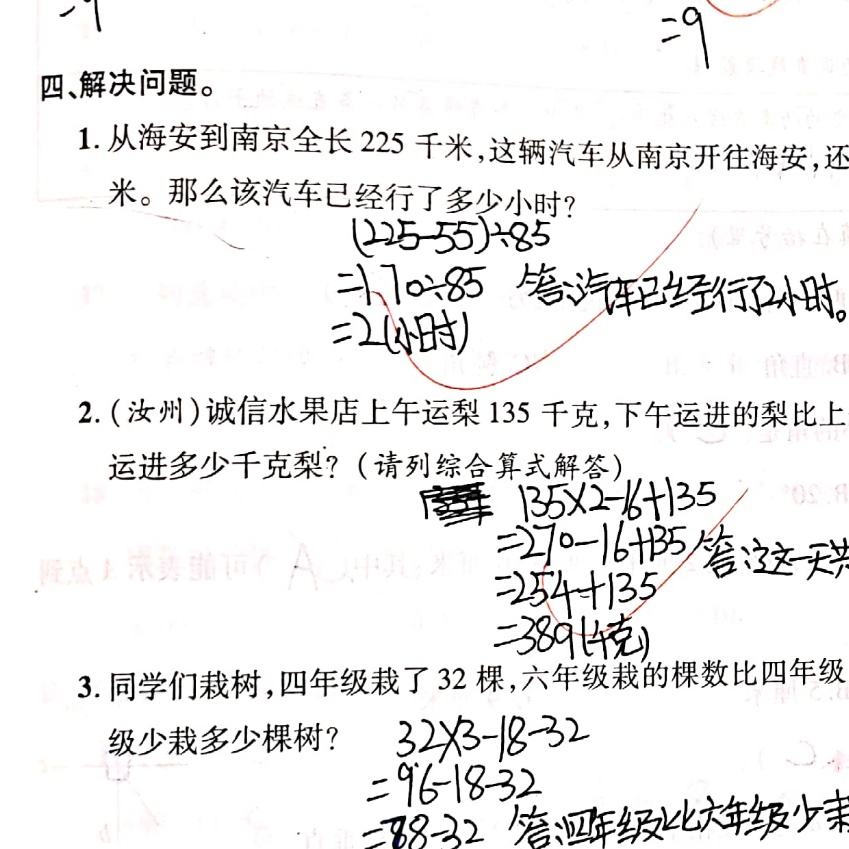 =9
=9
四、解决问题。
1. 从海安到南京全长 225 千米,这辆汽车从南京开往海安,还
米。那么该汽车已经行了多少小时?
(225-55)÷85
=170÷85 答:汽车已经行了2小时。
=2(小时)
2. (汝州)诚信水果店上午运梨 135 千克,下午运进的梨比上
运进多少千克梨?(请列综合算式解答)
135×2-16+135
=270-16+135 答:这一天共
=254+135
=389(千克)
3. 同学们栽树,四年级栽了 32 棵,六年级栽的棵数比四年级
级少栽多少棵树? 32×3-18-32
=96-18-32
=88-32 答:四年级比六年级少栽